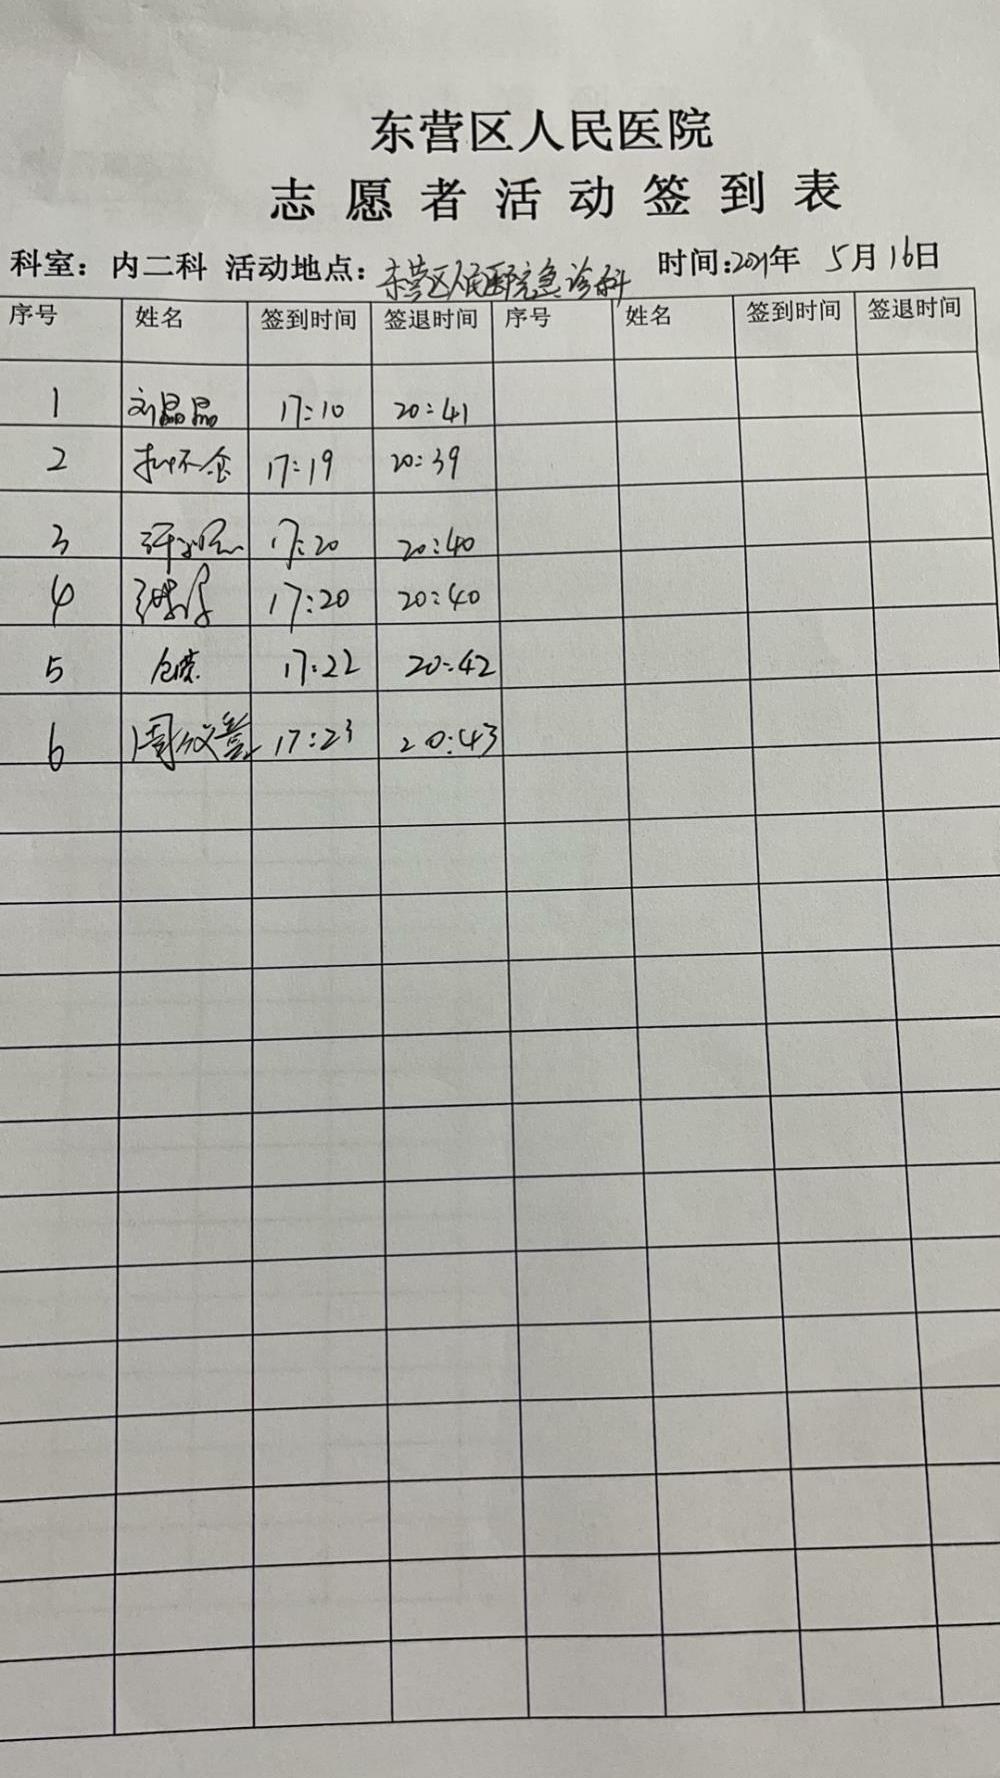 东营区人民医院
志愿者活动签到表
科室：内二科 活动地点：东营区人民医院急诊科 时间：2021年 5月16日
序号 姓名 签到时间 签退时间 序号 姓名 签到时间 签退时间
1 刘晶晶 17:10 20:41
2 17:19 20:39
3 17:20 20:40
4 17:20 20:40
5 17:22 20:42
6 周 17:23 20:43